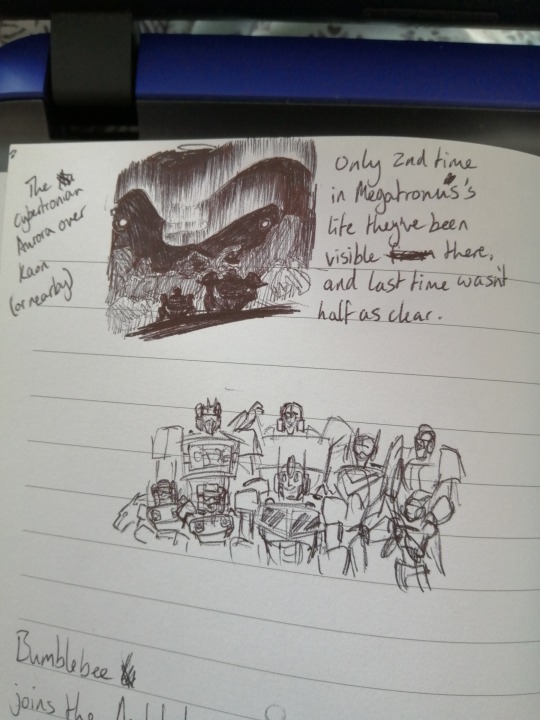 The
Cybertronian
Aurora over
Kaon
(or nearby)
Only 2nd time
in Megatronus's
life they've been
visible there,
and last time wasn't
half as clear.
Bumblebee
joins the